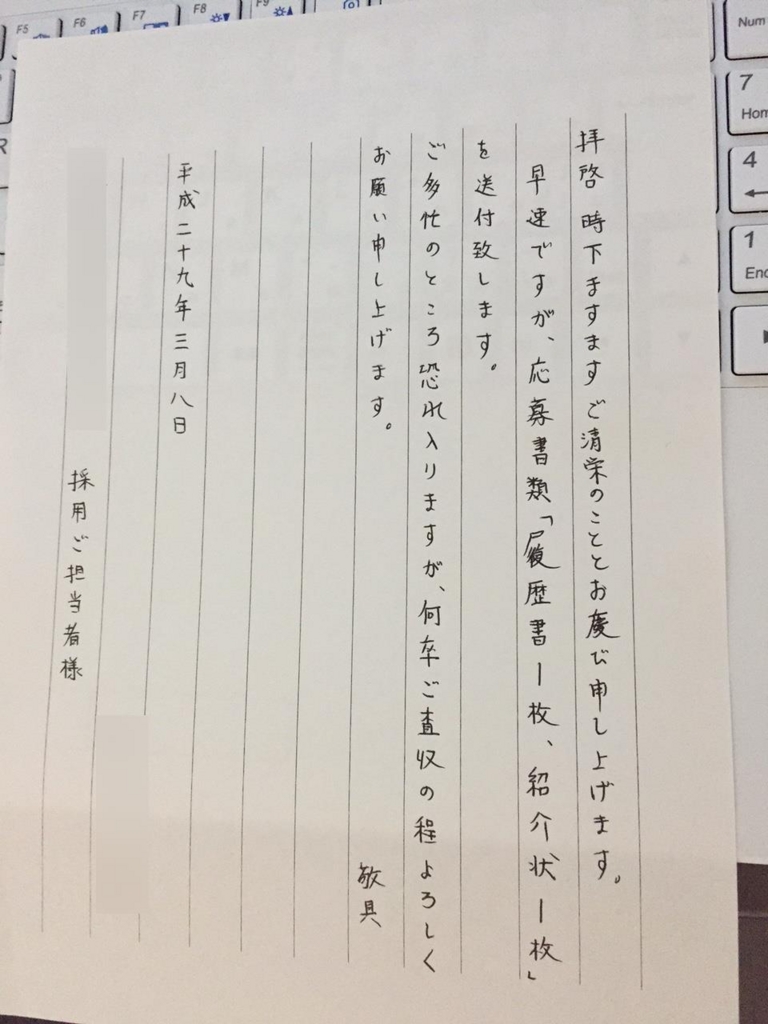 拝啓 時下ますますご清栄のこととお慶び申し上げます。
早速ですが、応募書類「履歴書1枚、紹介状1枚」
を送付致します。
ご多忙のところ恐れ入りますが、何卒ご査収の程よろしく
お願い申し上げます。
敬具
平成二十九年三月八日
採用ご担当者様
F5
F6
F7
F8
F9
Num
7
Hom
4
1
End